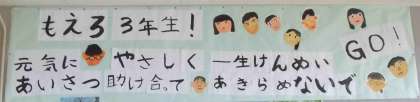 もえろ3年生!
元気に やさしく 一生けんめい GO!
あいさつ 助け合って あきらめないで